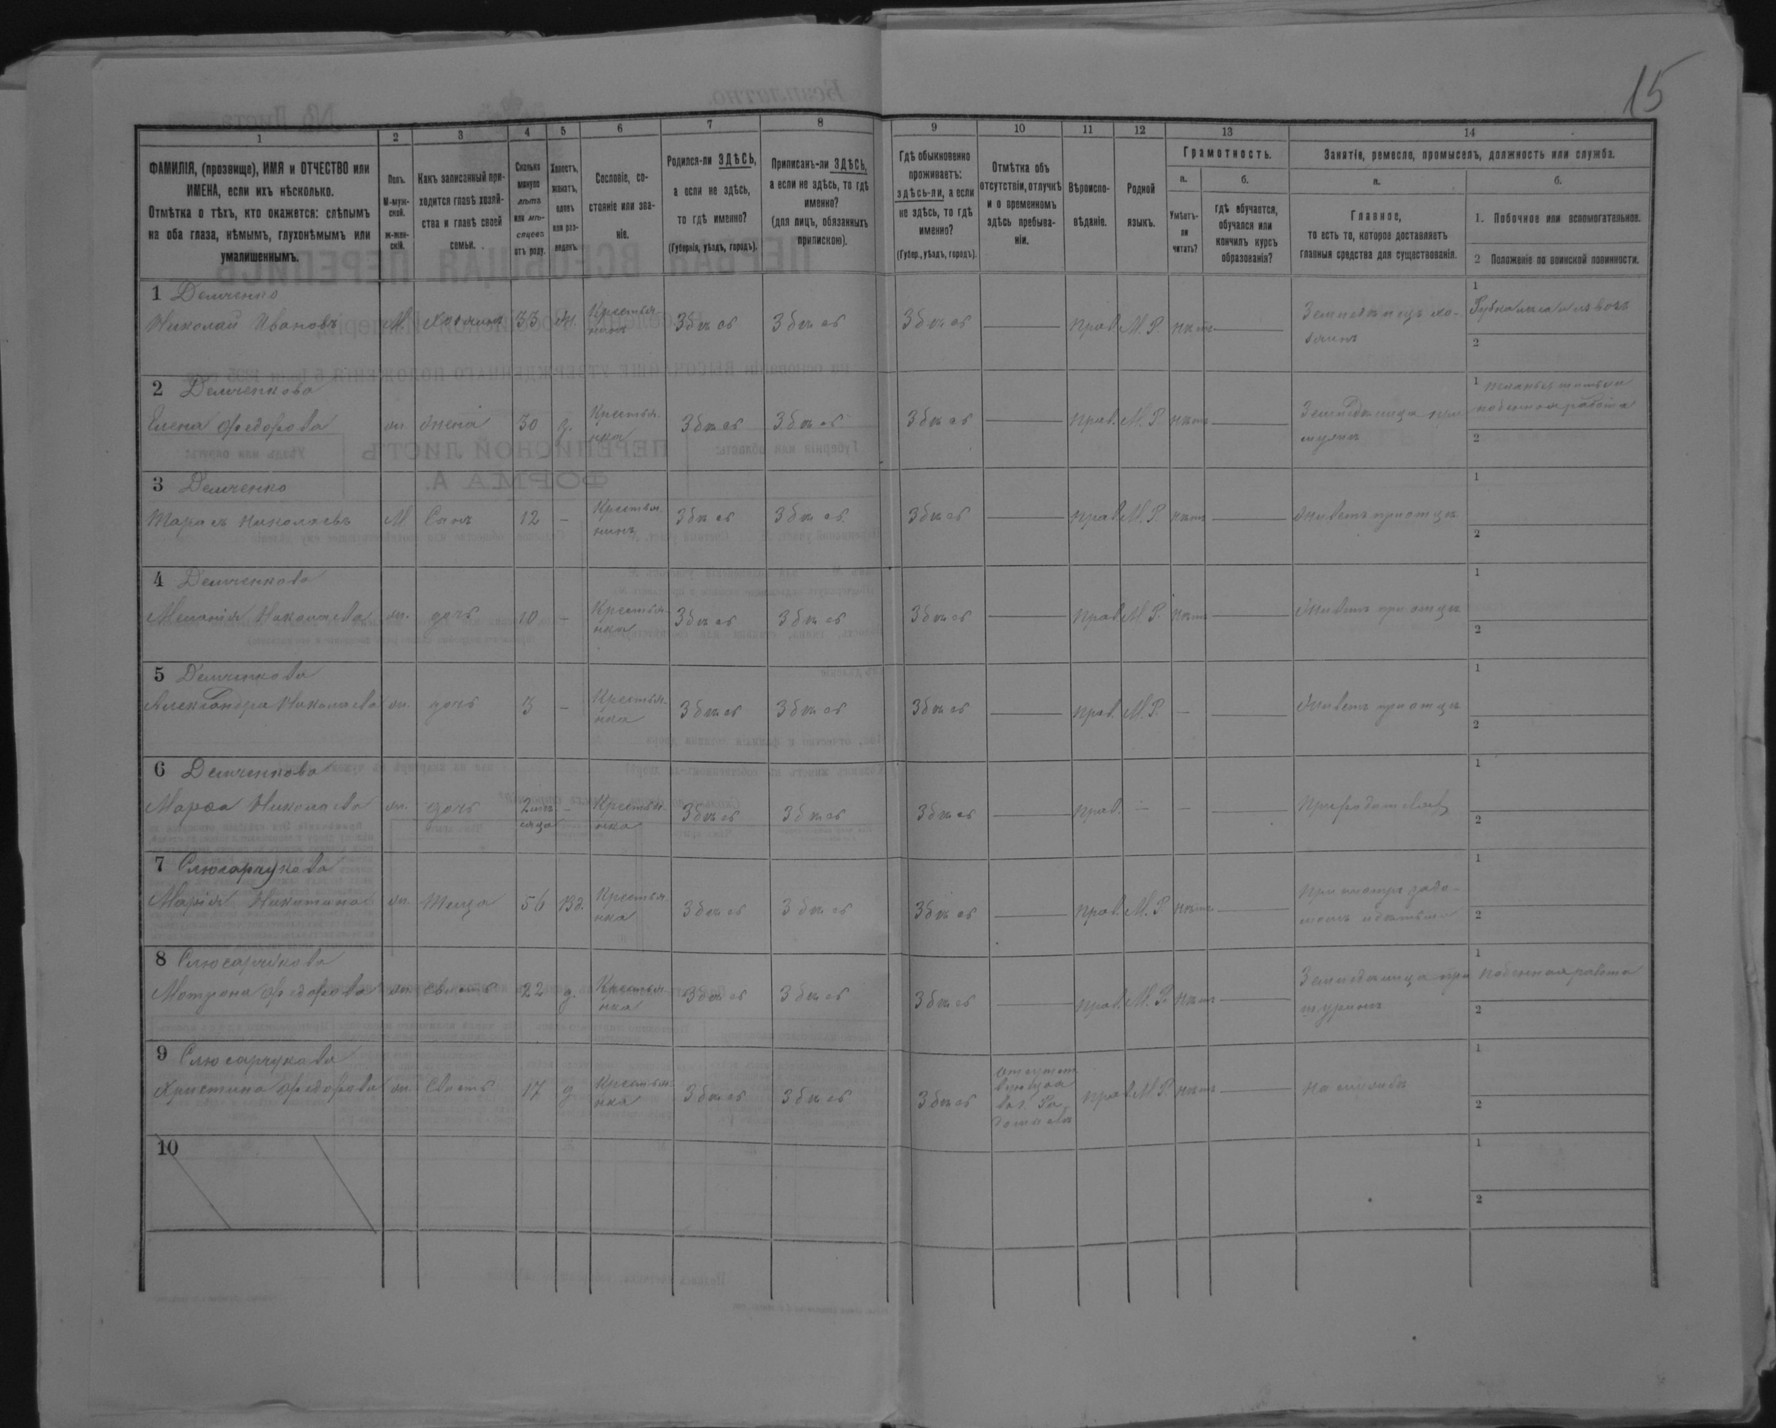 15
1 2 3 4 5 6 7 8 9 10 11 12 13 14
ФАМИЛІЯ, (прозвище), ИМЯ и ОТЧЕСТВО или
ИМЕНА, если ихъ нѣсколько.
Отмѣтка о тѣхъ, кто окажется: слѣпымъ
на оба глаза, нѣмымъ, глухонѣмымъ или
умалишеннымъ.
Полъ.
М-муж-
ской.
ж-жен-
скій.
Какъ записанный при-
ходится главѣ хозяй-
ства и главѣ своей
семьи.
Сколько
минуло
лѣтъ
или мѣ-
сяцевъ
отъ роду.
Холостъ,
женатъ,
вдовъ
или раз-
веденъ.
Сословіе, со-
стояніе или зва-
ніе.
Родился-ли ЗДѢСЬ,
а если не здѣсь,
то гдѣ именно?
(Губернія, уѣздъ, городъ).
Приписанъ-ли ЗДѢСЬ,
а если не здѣсь, то гдѣ
именно?
(для лицъ, обязанныхъ
припискою).
Гдѣ обыкновенно
проживаетъ:
здѣсь-ли, а если
не здѣсь, то гдѣ
именно?
(Губер., уѣздъ, городъ).
Отмѣтка объ
отсутствіи, отлучкѣ
и о временномъ
здѣсь пребыва-
ніи.
Вѣроиспо-
вѣданіе.
Родной
языкъ.
Грамотность.
а.
Умѣетъ-
ли
читать?
б.
гдѣ обучается,
обучался или
кончилъ курсъ
образованія?
Занятіе, ремесло, промыселъ, должность или служба.
а.
Главное,
то есть то, которое доставляетъ
главныя средства для существованія.
б.
1. Побочное или вспомогательное.
2 Положеніе по воинской повинности.
1 Демченко
Николай Ивановъ М. Хозяинъ 33 ж. Крестья
нинъ Здѣсь Здѣсь Здѣсь прав. М. Р. нѣтъ Земледѣлецъ хо-
зяинъ
1
2
2 Демченкова
Елена Федорова ж. жена 30 з. Крестья
нка Здѣсь Здѣсь Здѣсь прав. М. Р. нѣтъ Земледѣлица при
мужѣ
1
поденная работа
2
3 Демченко
Тарасъ Николаевъ М Сынъ 12 - Крестья
нинъ Здѣсь Здѣсь Здѣсь прав М. Р. нѣтъ Живетъ при отцѣ
1
2
4 Демченкова
Меланія Николаева ж. дочь 10 - Крестья
нка Здѣсь Здѣсь Здѣсь прав М. Р. нѣтъ Живетъ при отцѣ
1
2
5 Демченкова
Александра Николаева ж. дочь 3 - Крестья
нка Здѣсь Здѣсь Здѣсь прав. М. Р. - Живетъ при отцѣ
1
2
6 Демченкова
Марѳа Николаева ж. дочь 2 мѣ
сяца - Крестья
нка Здѣсь Здѣсь Здѣсь прав. - -
1
2
7 Слюсарчукова
Марія Никитина ж. Теща 56 вд. Крестья
нка Здѣсь Здѣсь Здѣсь прав. М. Р. нѣтъ
1
2
8 Слюсарчукова
Мотрона Федорова ж. свесть 22 д. Крестья
нка Здѣсь Здѣсь Здѣсь прав. М. Р. нѣтъ Земледѣлица при
1 поденная работа
2
9 Слюсарчукова
Христина Федорова ж. Свесть 17 д Крестья
нка Здѣсь Здѣсь Здѣсь отсутст
вующая прав М. Р. нѣтъ
1
2
10
1
2